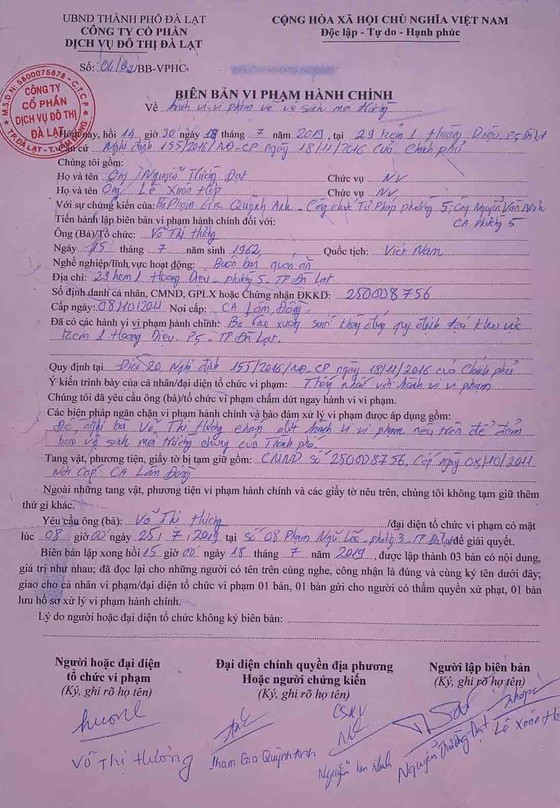 UBND THÀNH PHỐ ĐÀ LẠT
CÔNG TY CỔ PHẦN
DỊCH VỤ ĐÔ THỊ ĐÀ LẠT
CỘNG HÒA XÃ HỘI CHỦ NGHĨA VIỆT NAM
Độc lập - Tự do - Hạnh phúc
Số: /BB-VPHC
M.S.D.N: 5800075878 - C.T.C.P
CÔNG TY
CỔ PHẦN
DỊCH VỤ ĐÔ THỊ
ĐÀ LẠT
BIÊN BẢN VI PHẠM HÀNH CHÍNH
Về hành vi vi phạm về vệ sinh môi trường
Hôm nay, hồi 14 giờ 30 ngày 18 tháng 7 năm 2019, tại 29 hẻm 1 Hoàng Diệu, P5 ĐLạt
Căn cứ Nghị định 155/2016/NĐ-CP ngày 18/11/2016 của Chính phủ
Chúng tôi gồm:
Họ và tên Ông/ Nguyễn Thường Đạt Chức vụ NV
Họ và tên Ông/ Lê Xuân Hợp Chức vụ NV
Với sự chứng kiến của: Phạm Gia Quỳnh Anh - Công chức Tư Pháp phường 5; Ông Nguyễn Văn Ninh
CA Phường 5
Tiến hành lập biên bản vi phạm hành chính đối với:
Ông (Bà)/Tổ chức: Võ Thị Hường
Ngày 15 tháng 7 năm sinh 1962 Quốc tịch: Việt Nam
Nghề nghiệp/lĩnh vực hoạt động: Buôn bán quán ăn
Địa chỉ: 29 hẻm 1 Hoàng Diệu, phường 5, TP Đà Lạt
Số định danh cá nhân, CMND, GPLX hoặc Chứng nhận ĐKKD: 250008756
Cấp ngày: 08/10/2011 Nơi cấp: CA Lâm Đồng
Đã có các hành vi vi phạm hành chính: Bỏ rác xuống suối không đúng quy định tại khu vực
hẻm 1 Hoàng Diệu, P5, TP Đà Lạt.
Quy định tại Điều 20, Nghị định 155/2016/NĐ-CP ngày 18/11/2016 của Chính phủ
Ý kiến trình bày của cá nhân/đại diện tổ chức vi phạm: Thống nhất với hành vi vi phạm
Chúng tôi đã yêu cầu ông (bà)/tổ chức vi phạm chấm dứt ngay hành vi vi phạm.
Các biện pháp ngăn chặn vi phạm hành chính và bảo đảm xử lý vi phạm được áp dụng gồm:
Đề nghị bà Võ Thị Hường chấm dứt hành vi vi phạm nêu trên để đảm
bảo vệ sinh môi trường chung của Thành phố.
Tang vật, phương tiện vi phạm hành chính, giấy tờ bị tạm giữ gồm: CMND số 250008756, Cấp ngày 08/10/2011
Nơi cấp: CA Lâm Đồng
Ngoài những tang vật, phương tiện vi phạm hành chính và các giấy tờ nêu trên, chúng tôi không tạm giữ thêm
thứ gì khác.
Yêu cầu ông (bà): Võ Thị Hường /đại diện tổ chức vi phạm có mặt
lúc 08 giờ 00 ngày 25/7/2019 tại số 08 Phạm Ngũ Lão - phường 3 - TP Đà Lạt để giải quyết.
Biên bản lập xong hồi 15 giờ 00 ngày 18 tháng 7 năm 2019, được lập thành 03 bản có nội dung,
giá trị như nhau; đã đọc lại cho những người có tên trên cùng nghe, công nhận là đúng và cùng ký tên dưới đây;
giao cho cá nhân vi phạm/đại diện tổ chức vi phạm 01 bản, 01 bản gửi cho người có thẩm quyền xử phạt, 01 bản
lưu hồ sơ xử lý vi phạm hành chính.
Lý do người hoặc đại diện tổ chức không ký biên bản:
Người hoặc đại diện
tổ chức vi phạm
(Ký, ghi rõ họ tên)
Đại diện chính quyền địa phương
Hoặc người chứng kiến
(Ký, ghi rõ họ tên)
Người lập biên bản
(Ký, ghi rõ họ tên)
CSKV
Võ Thị Hường
Phạm Gia Quỳnh Anh
Nguyễn Văn Ninh
Nguyễn Thường Đạt
Lê Xuân Hợp